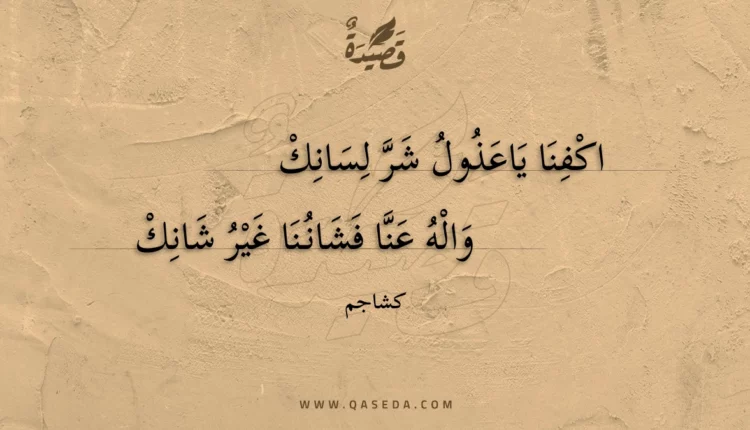 قَصِيدَةٌ
اكْفِنَا يَاعَذُولُ شَرَّ لِسَانِكْ
وَالْهُ عَنَّا فَشَانُنَا غَيْرُ شَانِكْ
كشاجم
WWW.QASEDA.COM